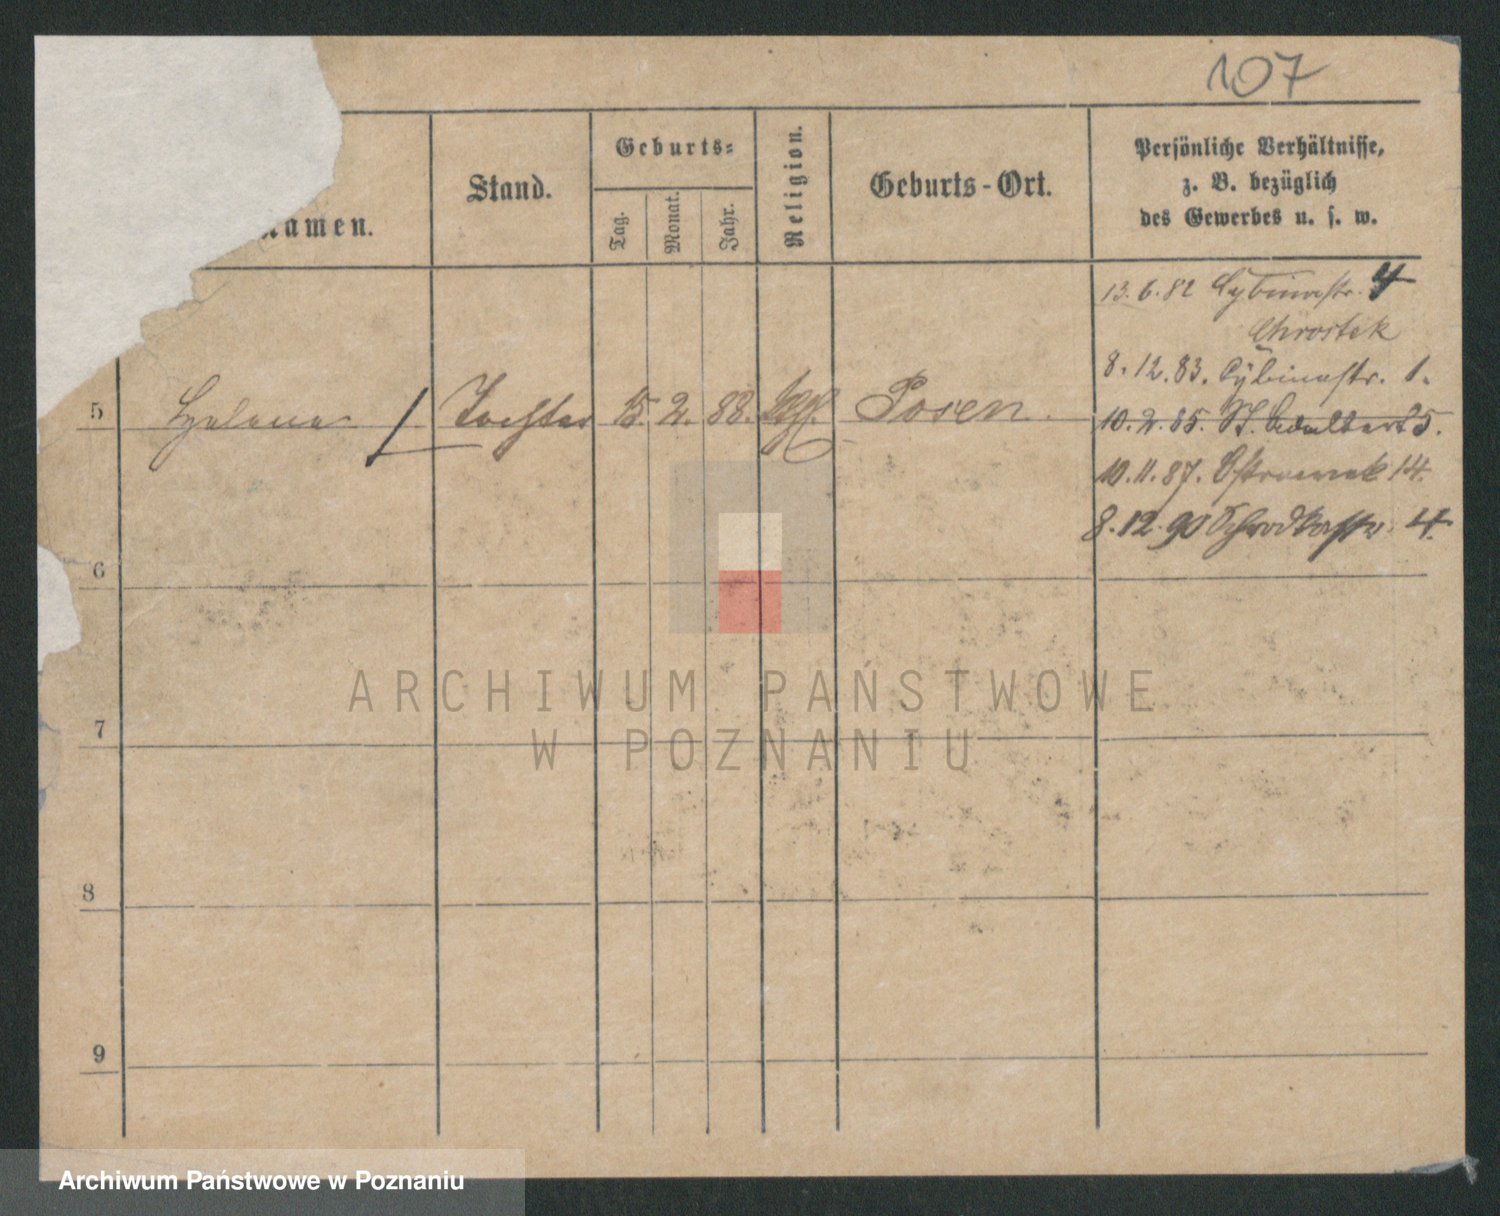 107
namen.
Stand.
Geburts=
Tag.
Monat.
Jahr.
Religion.
Geburts-Ort.
Persönliche Verhältnisse,
z. B. bezüglich
des Gewerbes u. s. w.
13.6.82 Cybinastr. 4
Chrostek
8.12.83. Cybinastr. 1.
5 Helene Tochter 15. 2. 88. Posen.
10.2.85. St. Adalbert 25.
10.11.87. Ostrowek 14.
8.12.90 Schrodkastr. 4.
6
7
8
9
ARCHIWUM PAŃSTWOWE
W POZNANIU
Archiwum Państwowe w Poznaniu